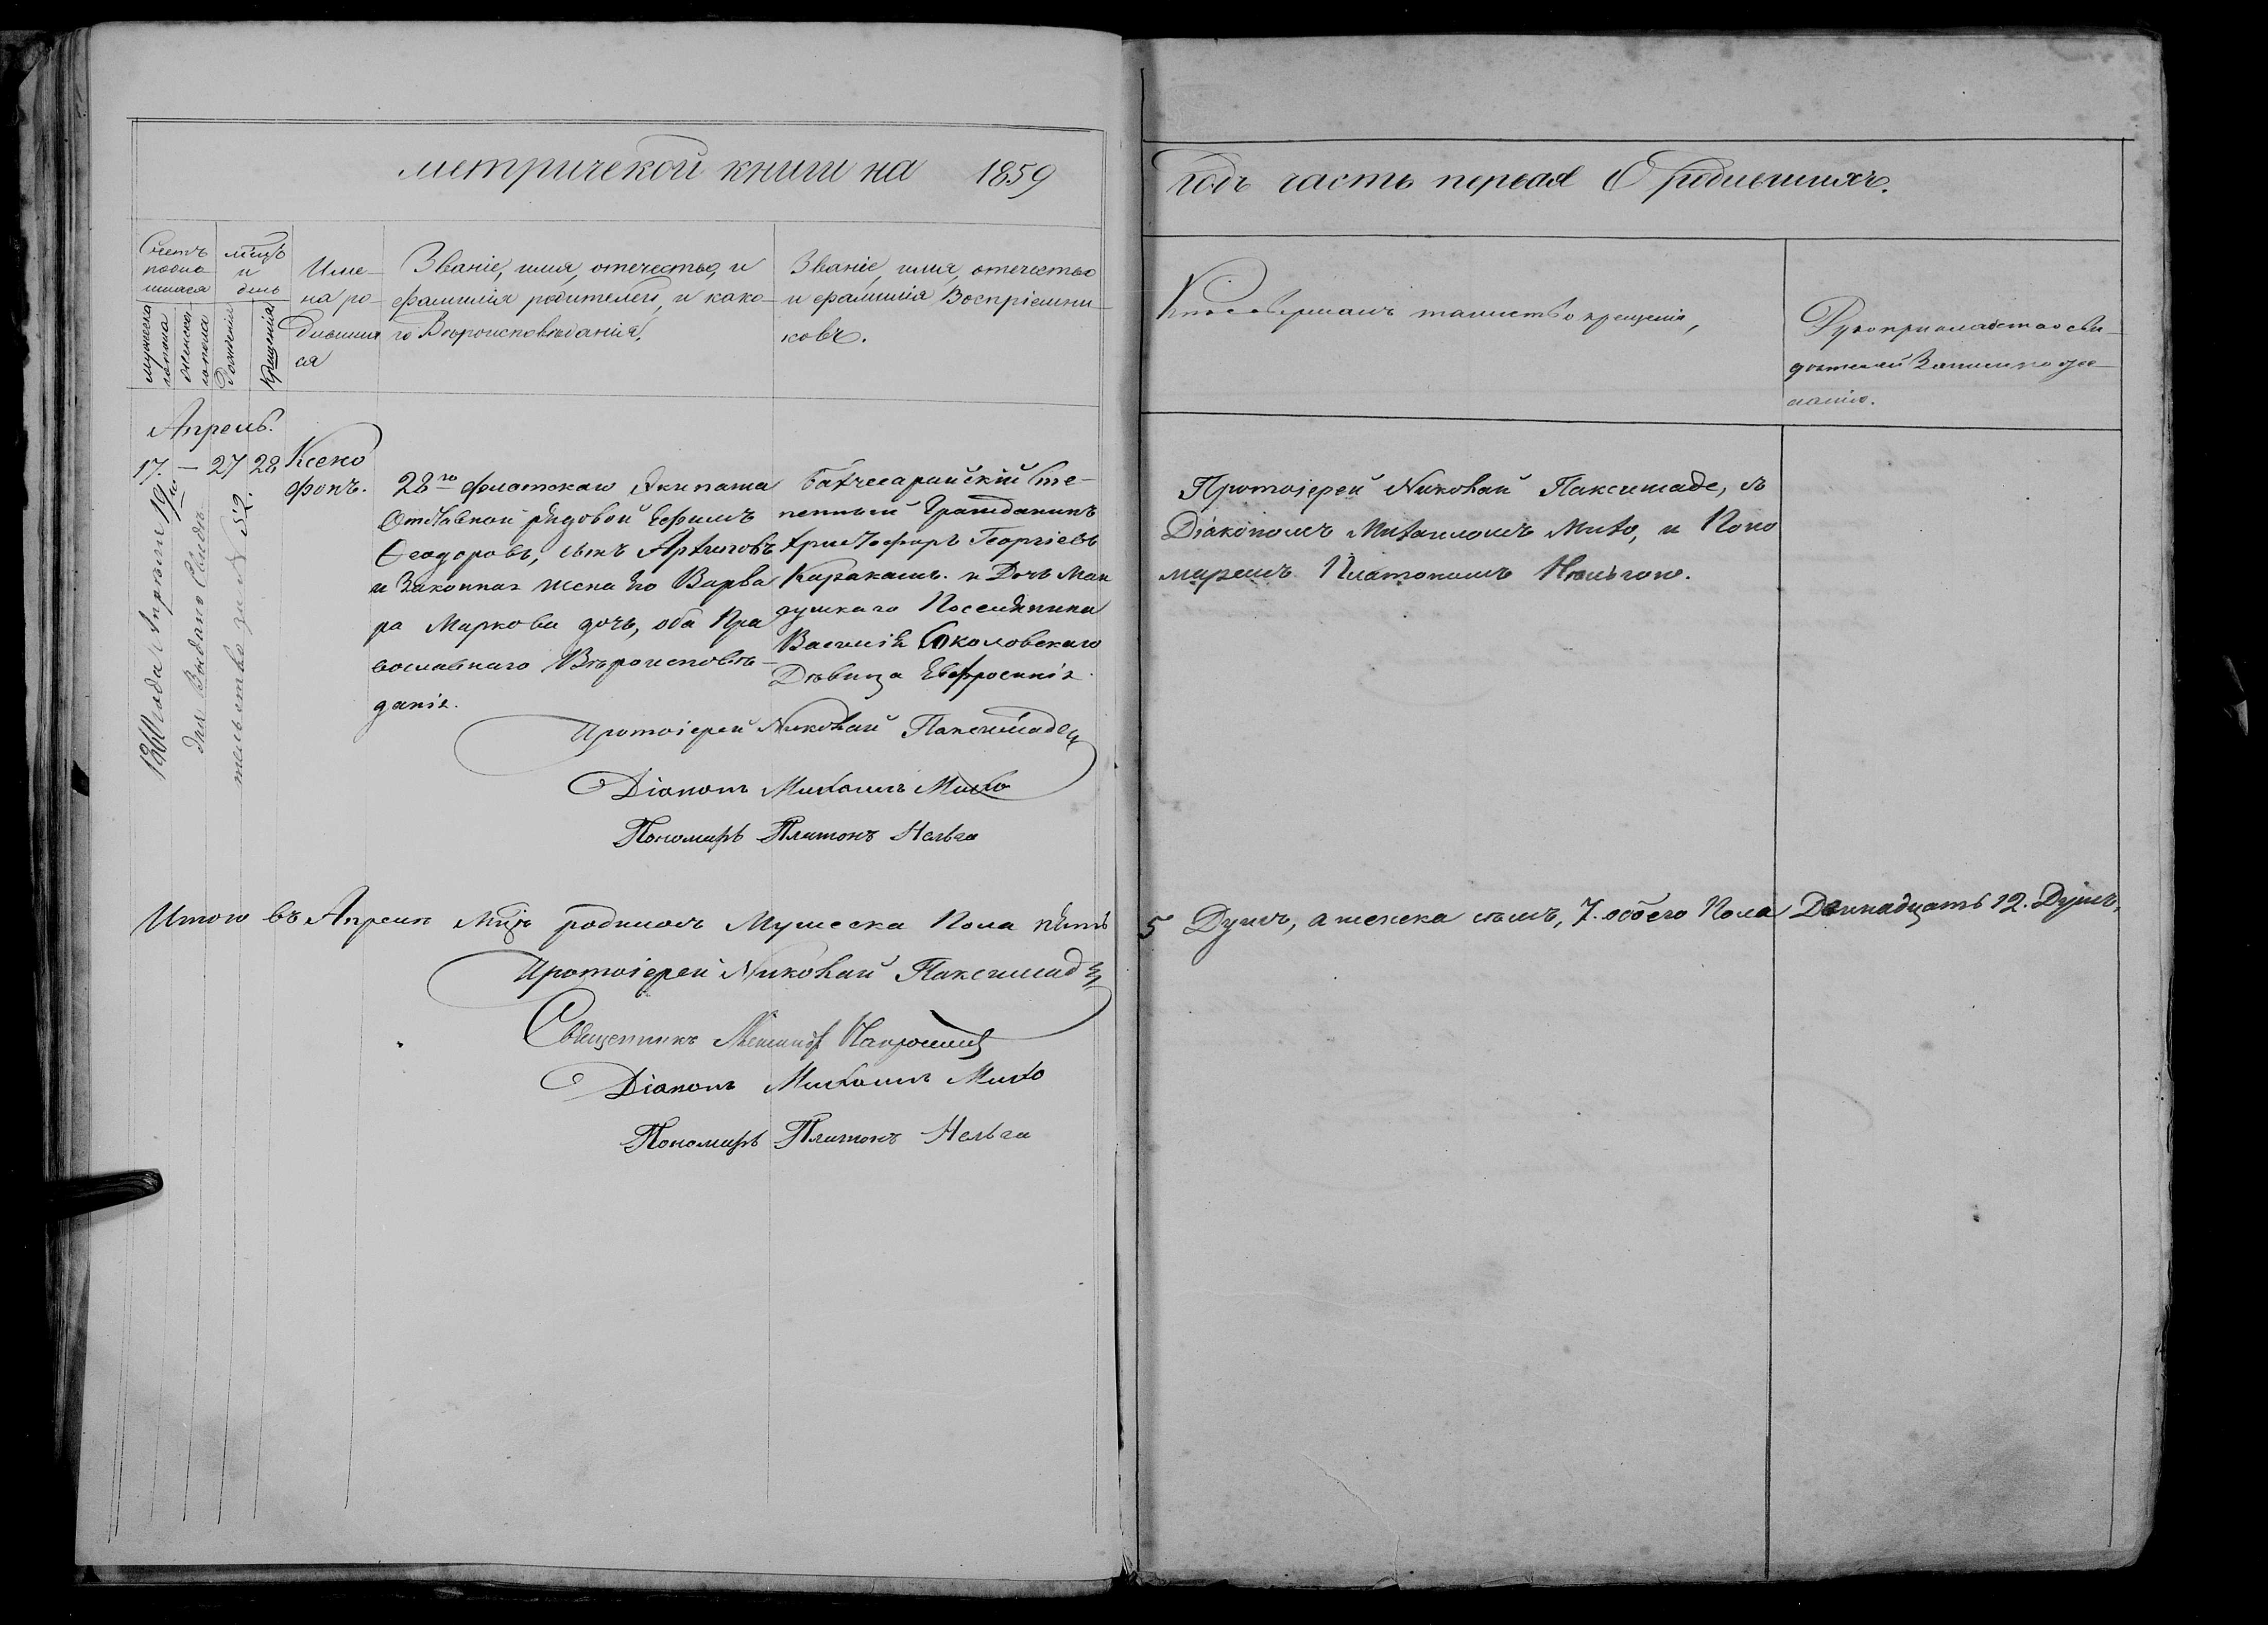 метрической книги на 1859
годъ часть первая О родившихся.
Счетъ
родив
шихся
мужеска
го пола
женска
го пола
мѣсцъ
и
день
рожденія
Крещенія
Име-
на ро-
дивших
ся
Званіе, имя, отечество, и
фамилія родителей, и како-
го Вѣроисповѣданія.
Званіе, имя, отечество
и фамилія Воспріемни-
ковъ.
Кто совершалъ таинство крещенія,
Рукоприкладство сви-
дѣтелей Записи по же-
ланію.
Апрель.
17. — 27 28
Ксено
фонъ.
28го флотскаго Экипажа
Отставной рядовой Ефимъ
Ѳеодоровъ, сынъ
и Законная жена Его Варва
ра Маркова дочь, оба Пра
вославнаго Вѣроисповѣ-
данія.
Бахчесарайскій Сте-
пенный Гражданинъ
Христофоръ Георгіевъ
Каракашъ. и Дочь Ман
гушкаго Поселянина
Василія Соколовскаго
Дѣвица Евфросинія.
Протоіерей Николай Паксимаде, съ
Діакономъ Михаиломъ Михо, и Поно
маремъ Платономъ
1860 года Апрѣля 19го
дня Выдано Свидѣ
тельство за N 52.
Протоіерей Николай Паксимаде
Діаконъ Михаилъ Михо
Пономарь Платонъ Нельга
Итого въ Апрели Мцѣ родилось Мужеска Пола пять
5 Душъ, а женска семь, 7. обоего Пола Двенадцать 12. Душъ,
Протоіерей Николай Паксимаде
Священникъ
Діаконъ Михаилъ Михо
Пономарь Платонъ Нельга